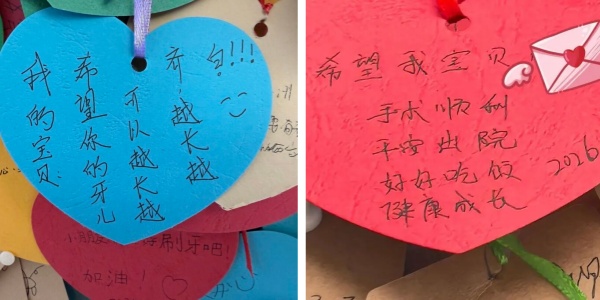 我的宝贝
希望你的牙儿
可以越长越
齐,越长越
白!!!
好刷牙吧!
加油!
开心
希望我宝贝
手术顺利
平安出院
好好吃饭
健康成长
2026